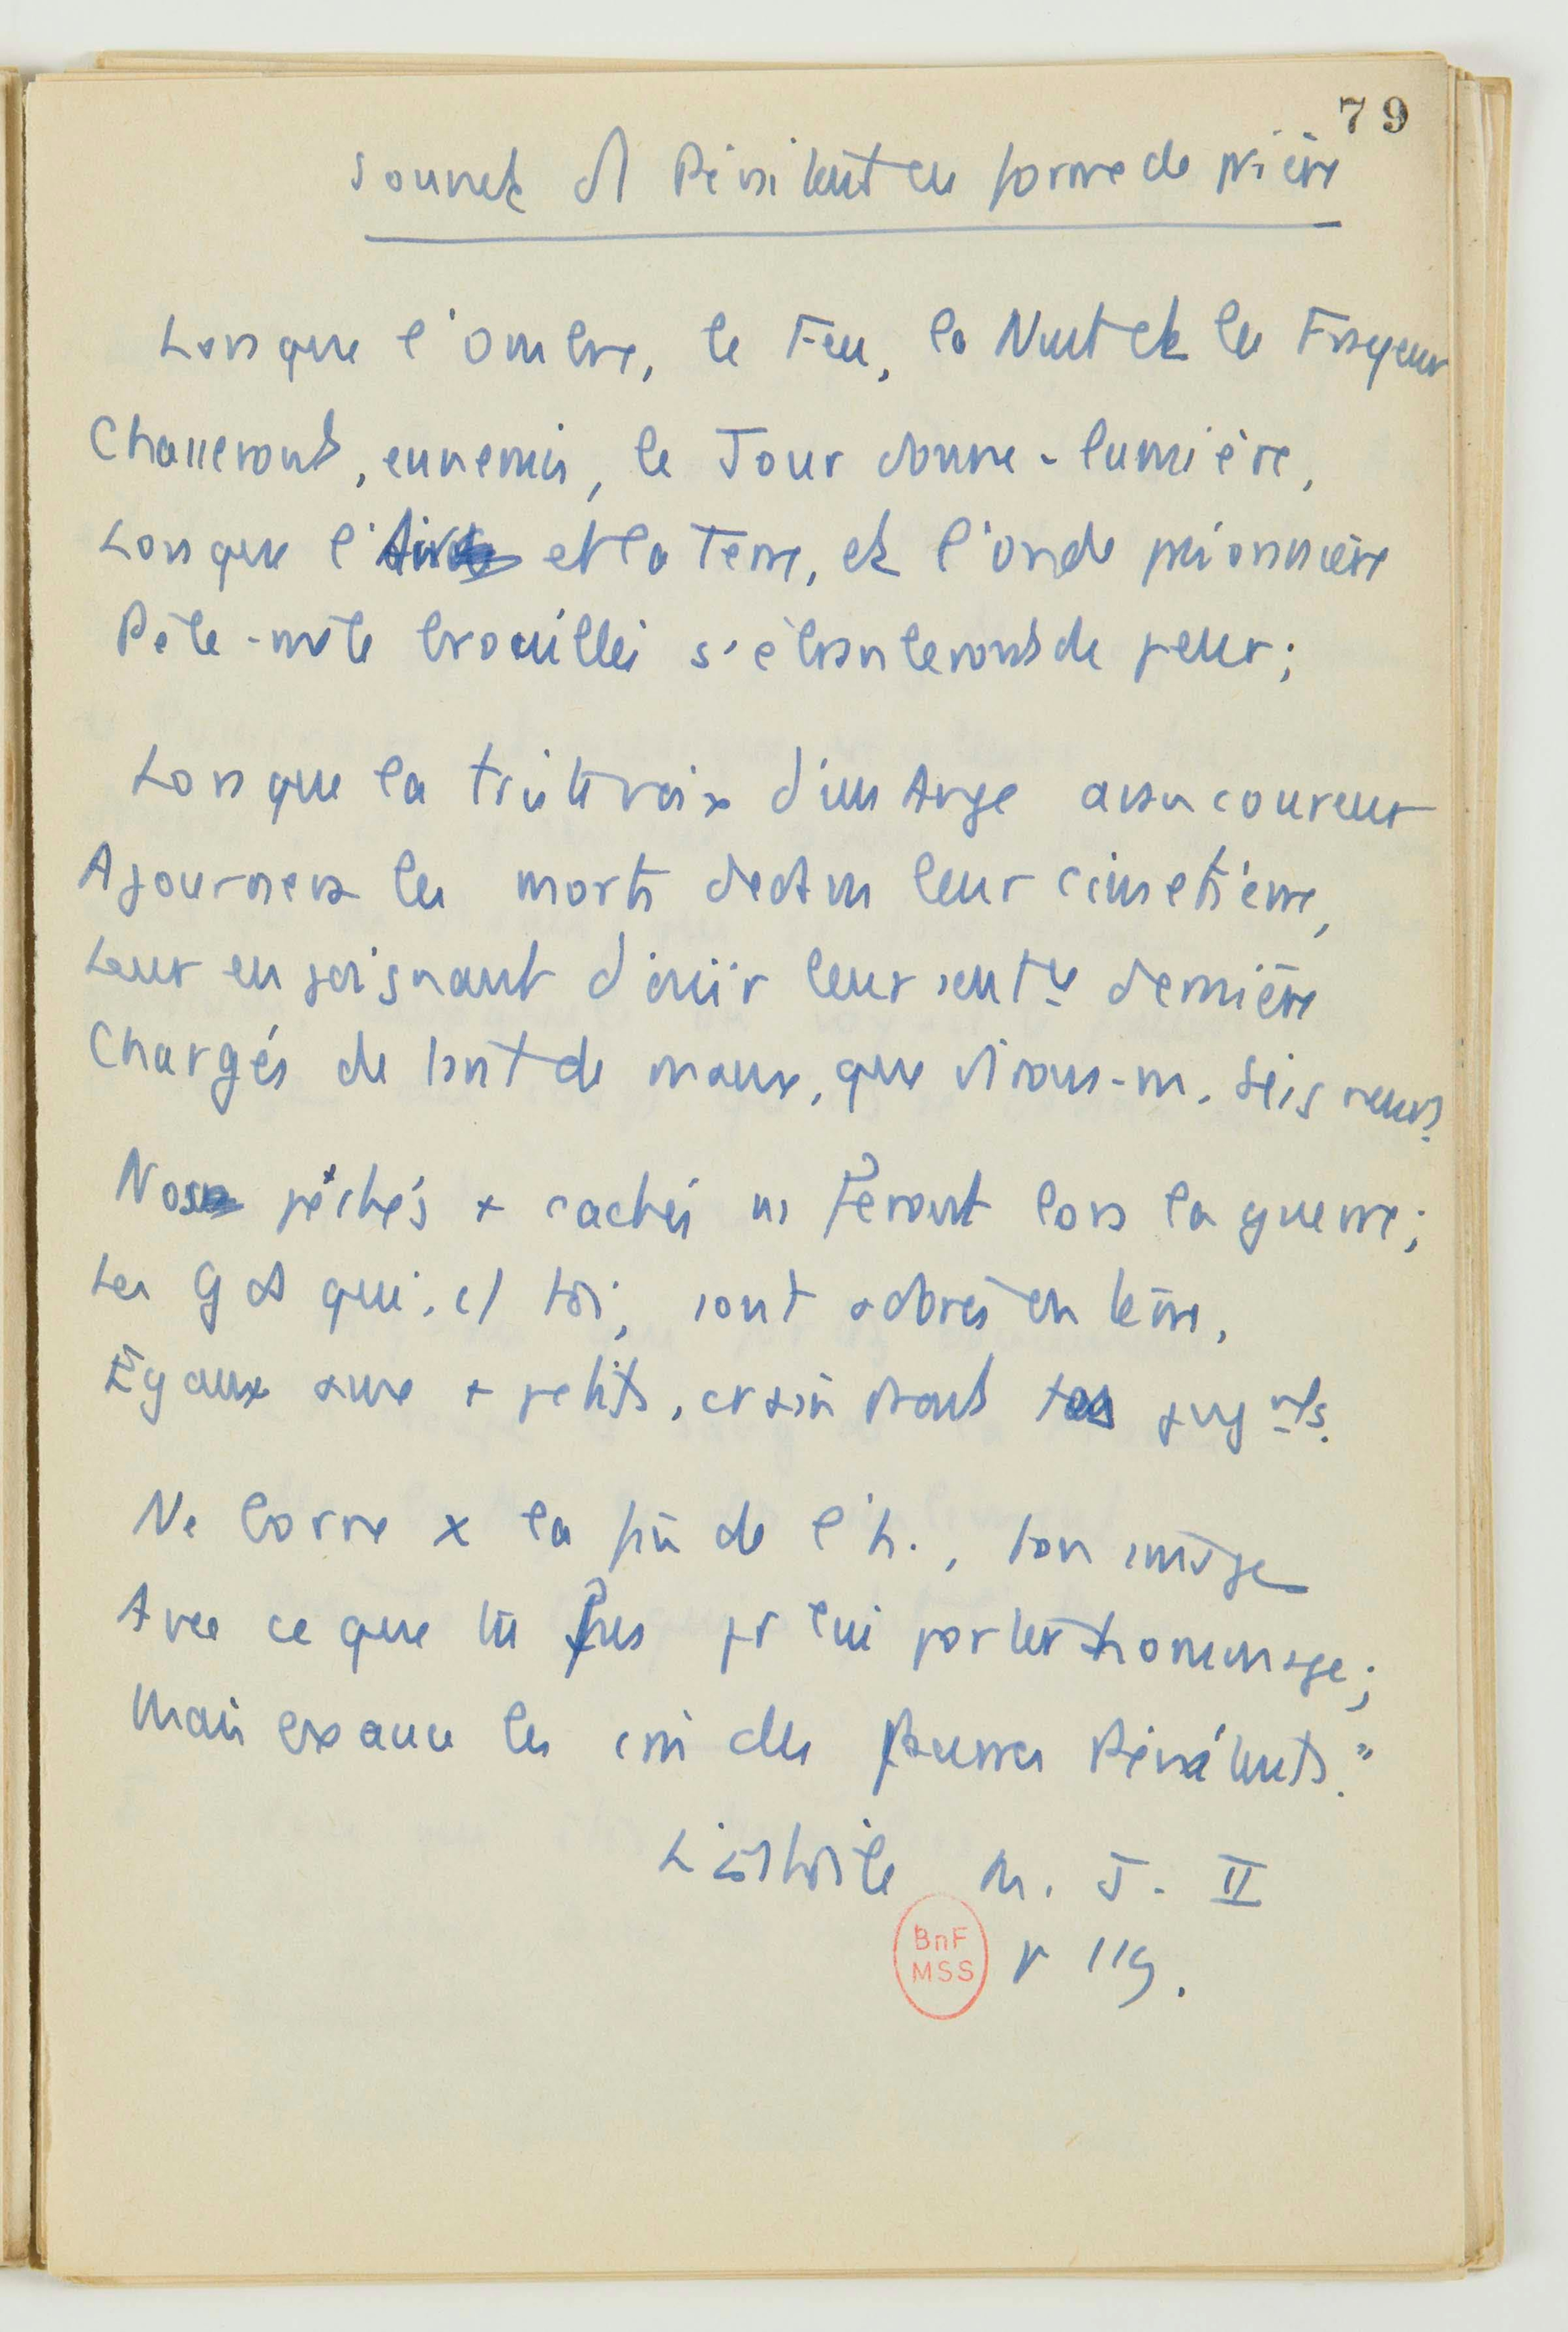 79
Sonnet d'1 Pénitent en forme de prière
Lorsque l'Ombre, le Feu, la Nuit et les Frayeurs
Chasseront, ennemis, le Jour donne-lumière,
Lorsque l'Air et la Terre, et l'onde prisonnière
Pêle-mêle brouillés s'ébranleront de peur ;
Lorsque la triste voix d'un Ange avancoureur
Ajournera les morts dedans leur cimetière,
Leur enjoignant d'ouïr leur sentce dernière
Chargés de tant de maux, que dirons-n. Seigneur ?
Nos péchés + cachés ns feront lors la guerre ;
Les Gds qui, c/ toi, sont adorés en terre,
Égaux aux + petits, craindront tes jugmts.
Ne borne x la fin de l'h., ton image
Avec ce que tu fis pr lui porter hommage ;
Mais exauce les cris des pauvres Pénitents."
L'Estoile M. J. II
p 119.
BnF
MSS